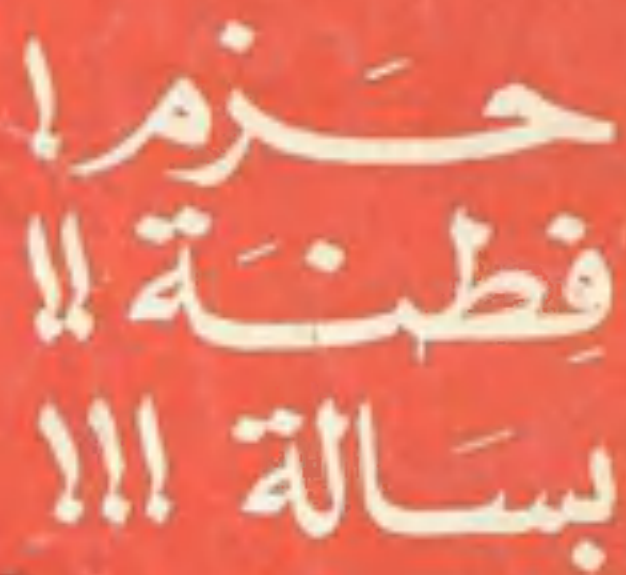 حَزم !
فِطنَة !!
بسَالة !!!